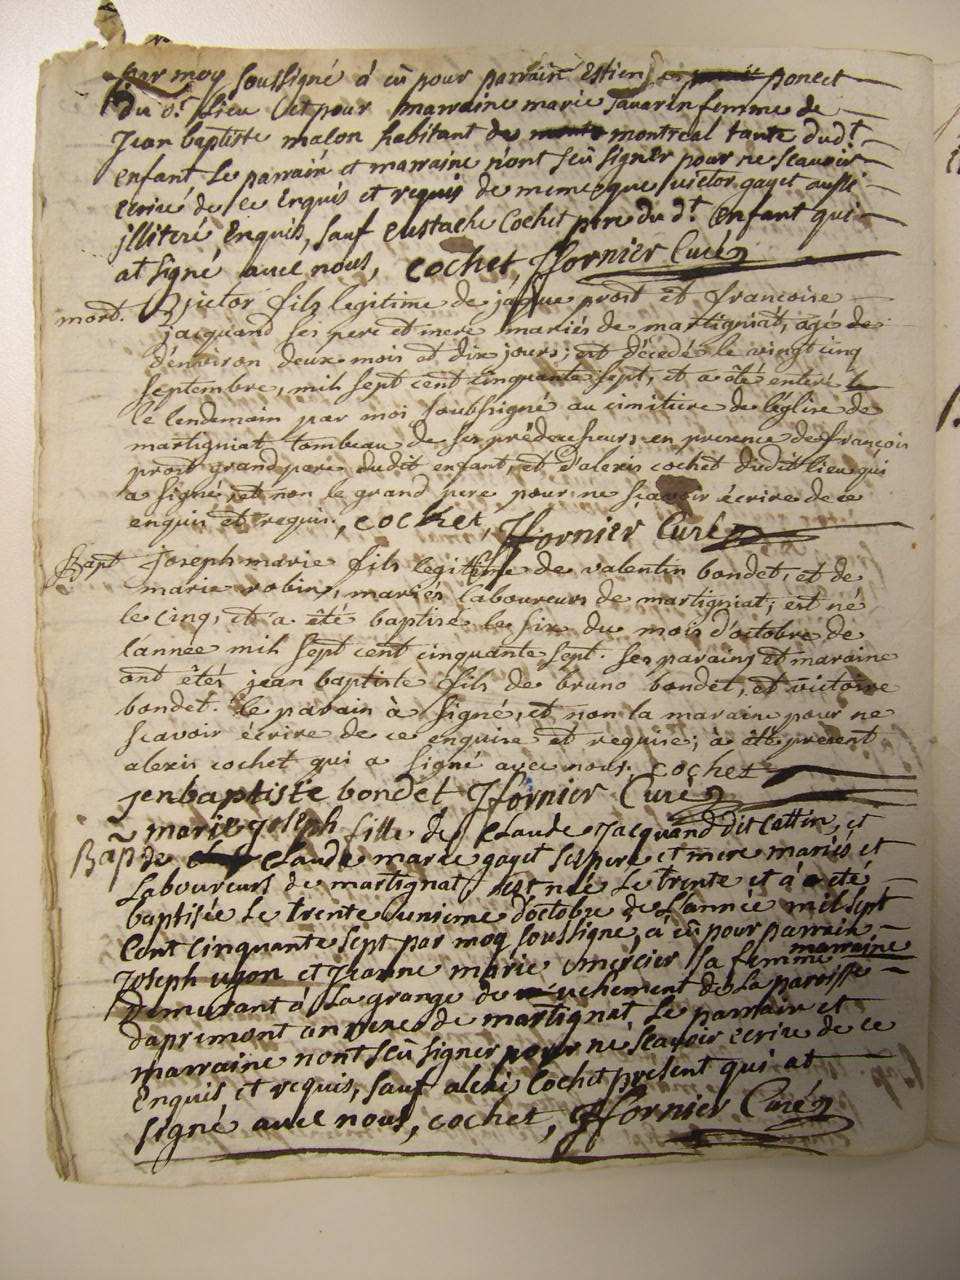 par moy soussigné à eü pour parrain Estien poncet
du d.t lieu et pour marraine marie Tavarin femme de
Jean baptiste malon habitant de montreal tante dud.t
enfant Le parrain et marraine n'ont sçü signer pour ne sçavoir
ecrire de ce Enquis et requis de meme que victor gayet aussi
illiteré Enquis, sauf Eustache Cochet pere du d.t Enfant qui
at signé avec nous, cochet ffornier Curé
mort. Victor fils legitime de jaque prost et francoise
jacquand ses pere et mere mariés de martigniat, agé de
d'environ deux mois et dix jours, est décedé le vingt cinq
septembre, mil sept cent cinquante sept, et a eté enteré le
le lendemain par moi soubsigné au cimitiere de l'église de
martigniat tombeau de ses prédecesseurs en presence de françois
prost grand pere dudit enfant, et d'alexis cochet dudit lieu qui
a signé, et non le grand pere pour ne sçavoir écrire de ce
enquis et requis, cochet, ffornier Curé
Bapt Joseph marie fils legitime de valentin bondet, et de
marie robin, mariés laboureurs de martigniat, est né
le cinq, et a êté baptisé le six du mois d'octobre de
l'année mil sept cent cinquante sept. ses parains et maraine
ont êtés jean baptiste fils de bruno bondet, et victoire
bondet. le parain à signé, et non la maraine pour ne
scavoir écrire de ce enquise et requise; à êté present
alexis cochet qui a signé avec nous. cochet
jenbaptiste bondet ffornier Curé
marie joseph fille de Claude Jacquand dit Cattin, et
Bap de Claude marie gayet ses pere et mere mariés et
Laboureurs de martignat, est née Le trente et à eté
baptisée Le trente unieme d'octobre de L'année mil sept
Cent cinquante sept par moy soussigné, à eü pour parrain
Joseph ugon et Jeanne marie mercier sa femme marraine
Demurant à La grange de vechement de La paroisse
dapremont annexe de martignat Le parrain et
marraine n'ont sçü signer pour ne Scavoir ecrire de ce
Enquis et requis, sauf alexi Cochet present qui at
signé avec nous, cochet, ffornier Curé